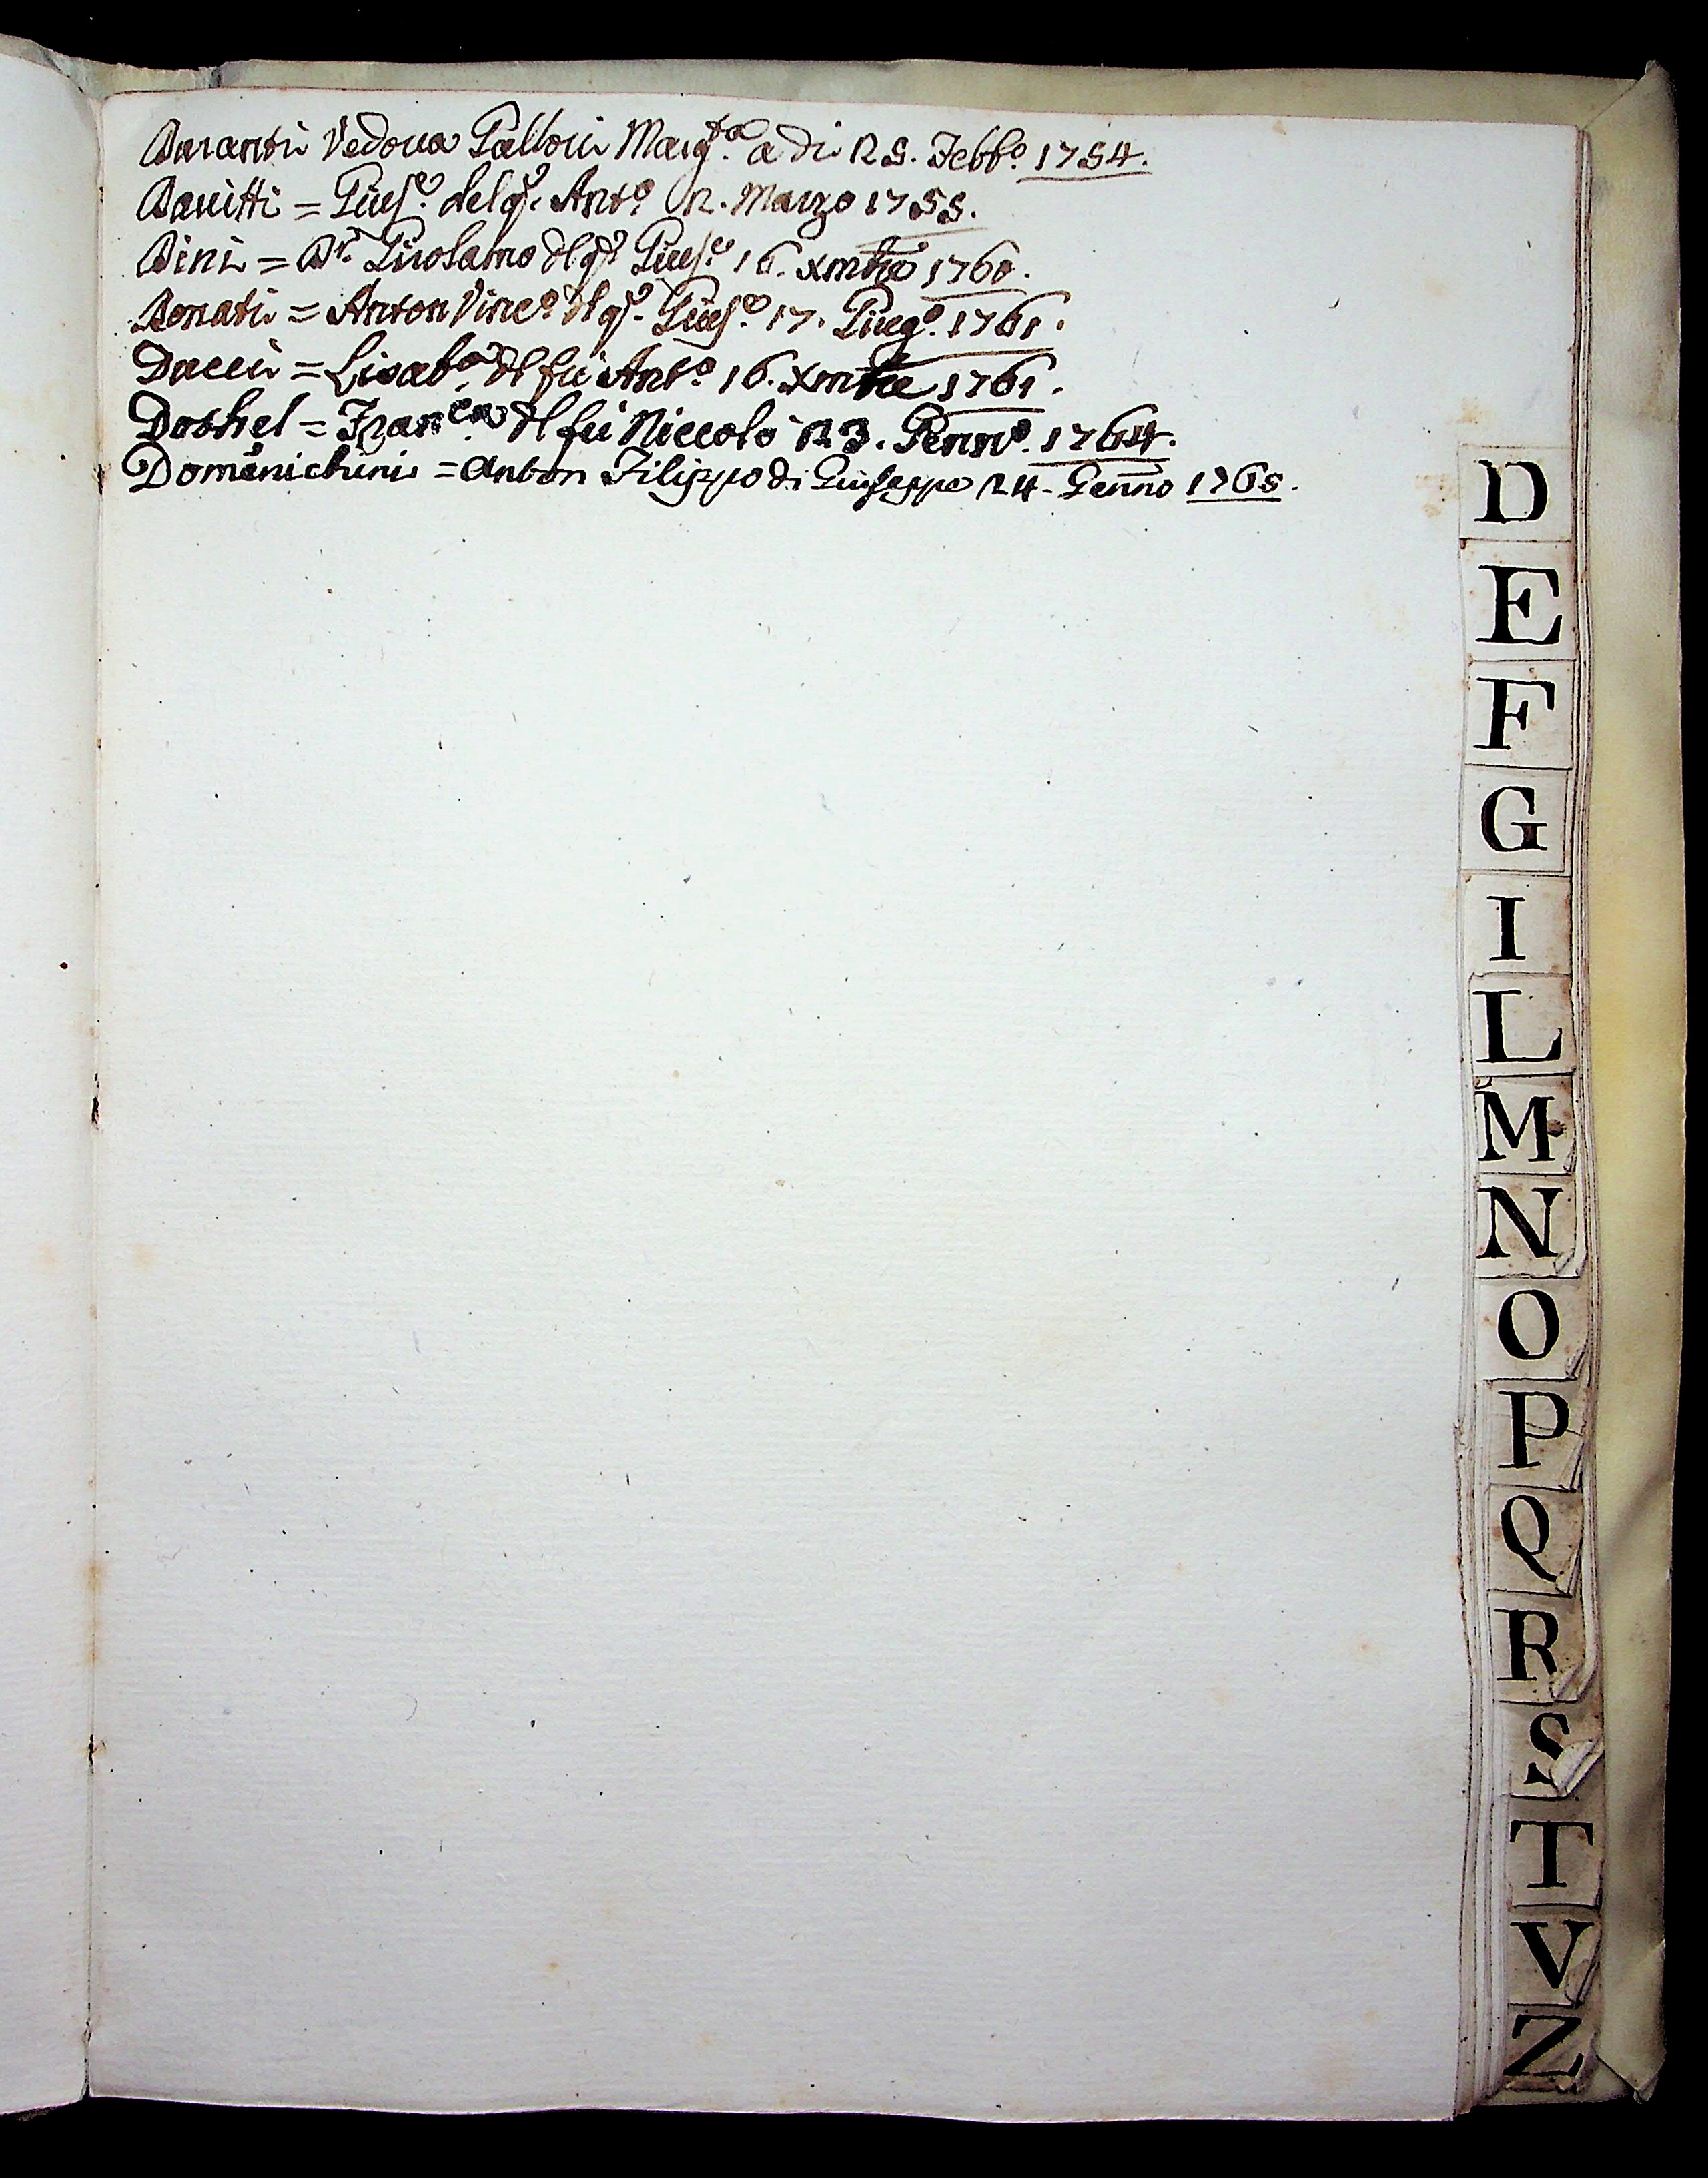 Duranti Vedova Pallori Marg.ta a di 25. Febb.o 1754.
Davitti = Gius.e del q. Ant.o 12. Marzo 1755.
Dini = Dr. Girolamo dl q. Gius.e 16. Xmbre 1760.
Donati = Anton Vinc.o dl q. Gius.e 17. Giug.o 1761.
Ducci = Lisab.a dl fu Ant.o 16. Xmbre 1761.
Dothel = Fran.ca dl fu Niccolò 23. Genn.o 1764.
Domenichini = Anton Filippo di Giuseppe 24 - Genno 1765.
D
E
F
G
I
L
M
N
O
P
Q
R
S
T
V
Z